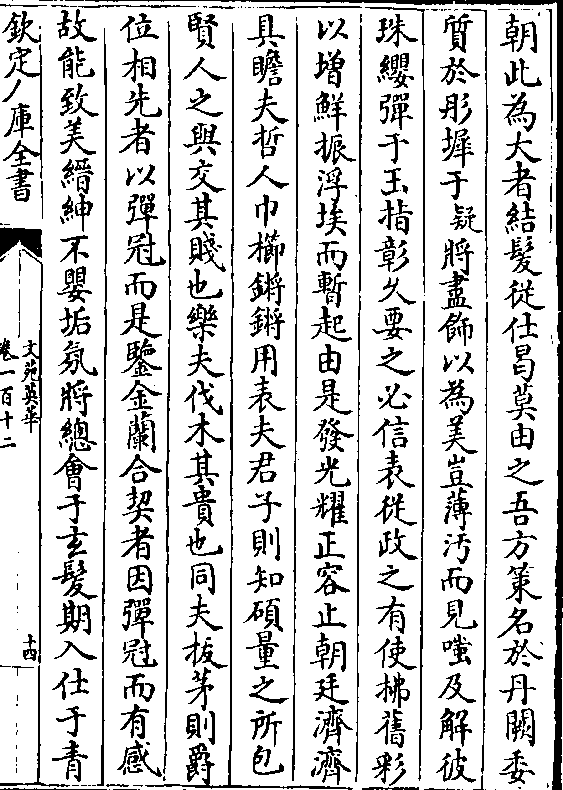 朝此為大者結髮從仕曷莫由之吾方策名於丹闕委
質於彤墀于疑將盡飾以為美豈薄汚而見嗤及解彼
珠纓彈于玉指彰久要之必信表從政之有使拂舊彩
以增鮮振浮埃而暫起由是發光耀正容止朝廷濟濟
具瞻夫哲人巾櫛鏘鏘用表夫君子則知碩量之所包
賢人之與交其賤也樂夫伐木其貴也同夫拔茅則爵
位相先者以彈冠而是鑒金蘭合契者因彈冠而有感
故能致美縉紳不嬰垢氛將總會于玄髮期入仕于青
欽定庫全書
文苑英華
卷一百十二
十四